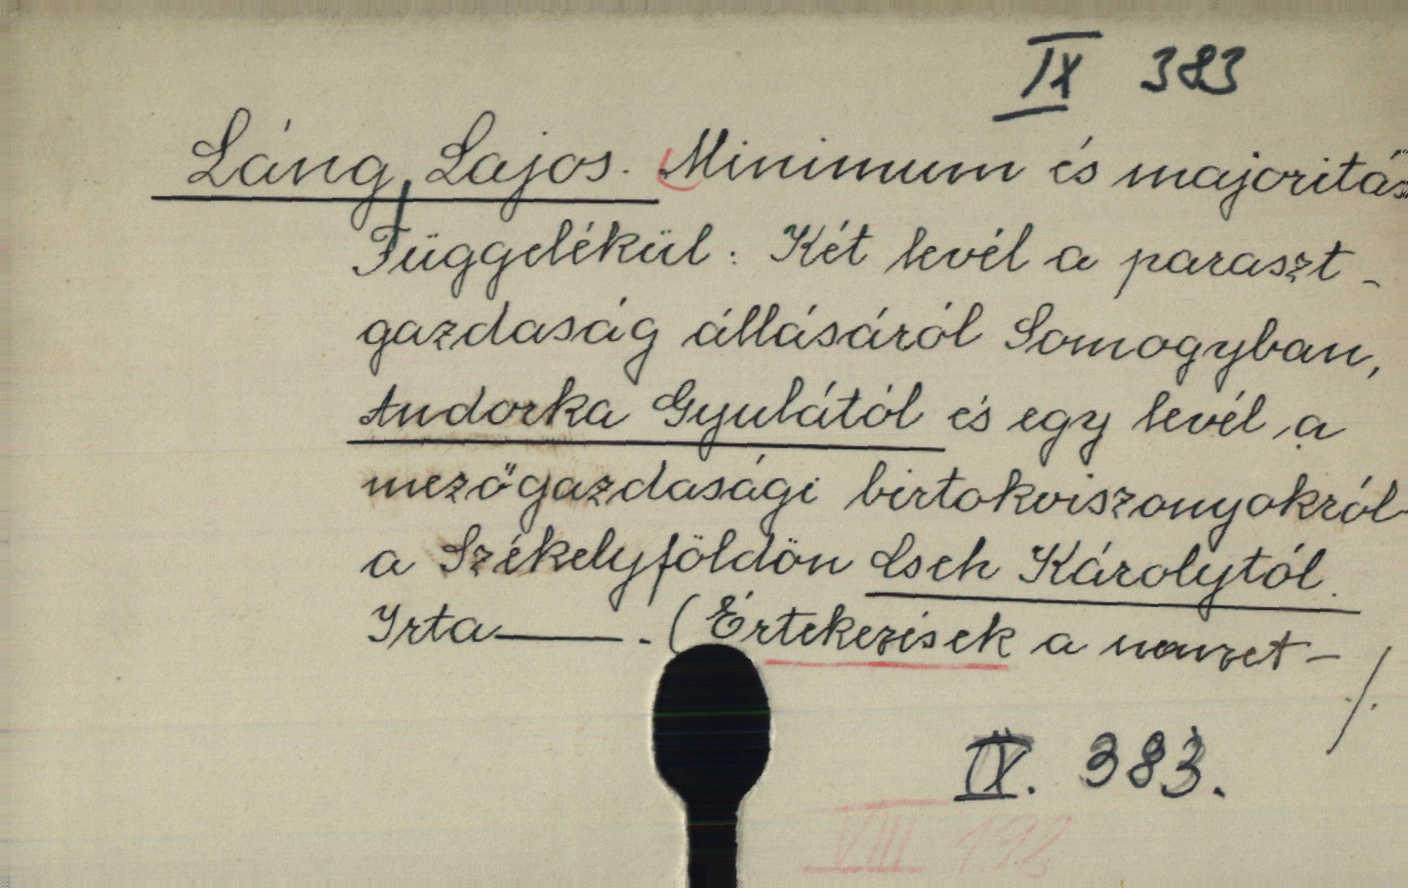 IX 383
Láng, Lajos. Minimum és majoritás
Függelékül: Két levél a paraszt-
gazdaság állásáról Somogyban,
Andorka Gyulától és egy levél a
mezőgazdasági birtokviszonyokról
a Székelyföldön Cseh Károlytól.
Irta ——. (Értekezések a nemzet-
./.
IX. 383.
VIII 192